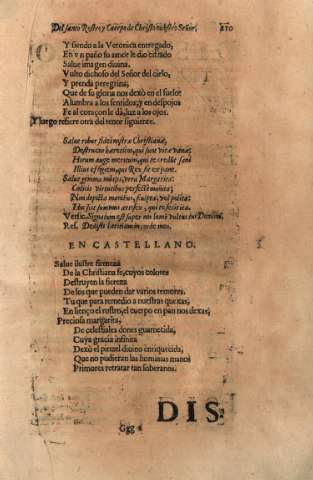 Del santo Rostro y Cuerpo de Christo nuestro Señor. 210
Y siendo a la Veronica entregado,
En vn paño su amor le dio cifrado
Salue imagen diuina.
Vulto dichoso del Señor del cielo,
Y prenda peregrina,
Que de su gloria nos dexò en el suelo:
Alumbra a los sentidos, y en despojos
Fe al coraçon le dà, luz a los ojos.
Y luego refiere otra del tenor siguiente.
Salue robur fidei nostræ Christianæ,
Destruens hæreticos, qui sunt vitæ vanæ:
Horum auge meritum, qui te credunt sanè
Illius effigiem, qui Rex fit ex pane.
Salue gemma nobis, vera Margarita:
Cælicis virtutibus perfectè munita;
Non depicta manibus, sculpta, vel polita;
Hoc scit summus artifex, qui te fecit ita.
Versic. Signatum est super nos lumē vultus tui Domine,
Res. Dedisti lætitiam in corde meo.
EN CASTELLANO.
Salue ilustre firmeza
De la Christiana fe, cuyos colores
Destruyen la fiereza
De los que pueden dar varios temores.
Tu que para remedio a nuestras quexas,
En lienço el rostro, el cuerpo en pan nos dexas;
Preciosa margarita,
De celestiales dones guarnecida,
Cuya gracia infinita
Dexò el pinzel diuino enriquecida,
Que no pudieran las humanas manos
Primores retratar tan soberanos.
DIS-
Ggg 4